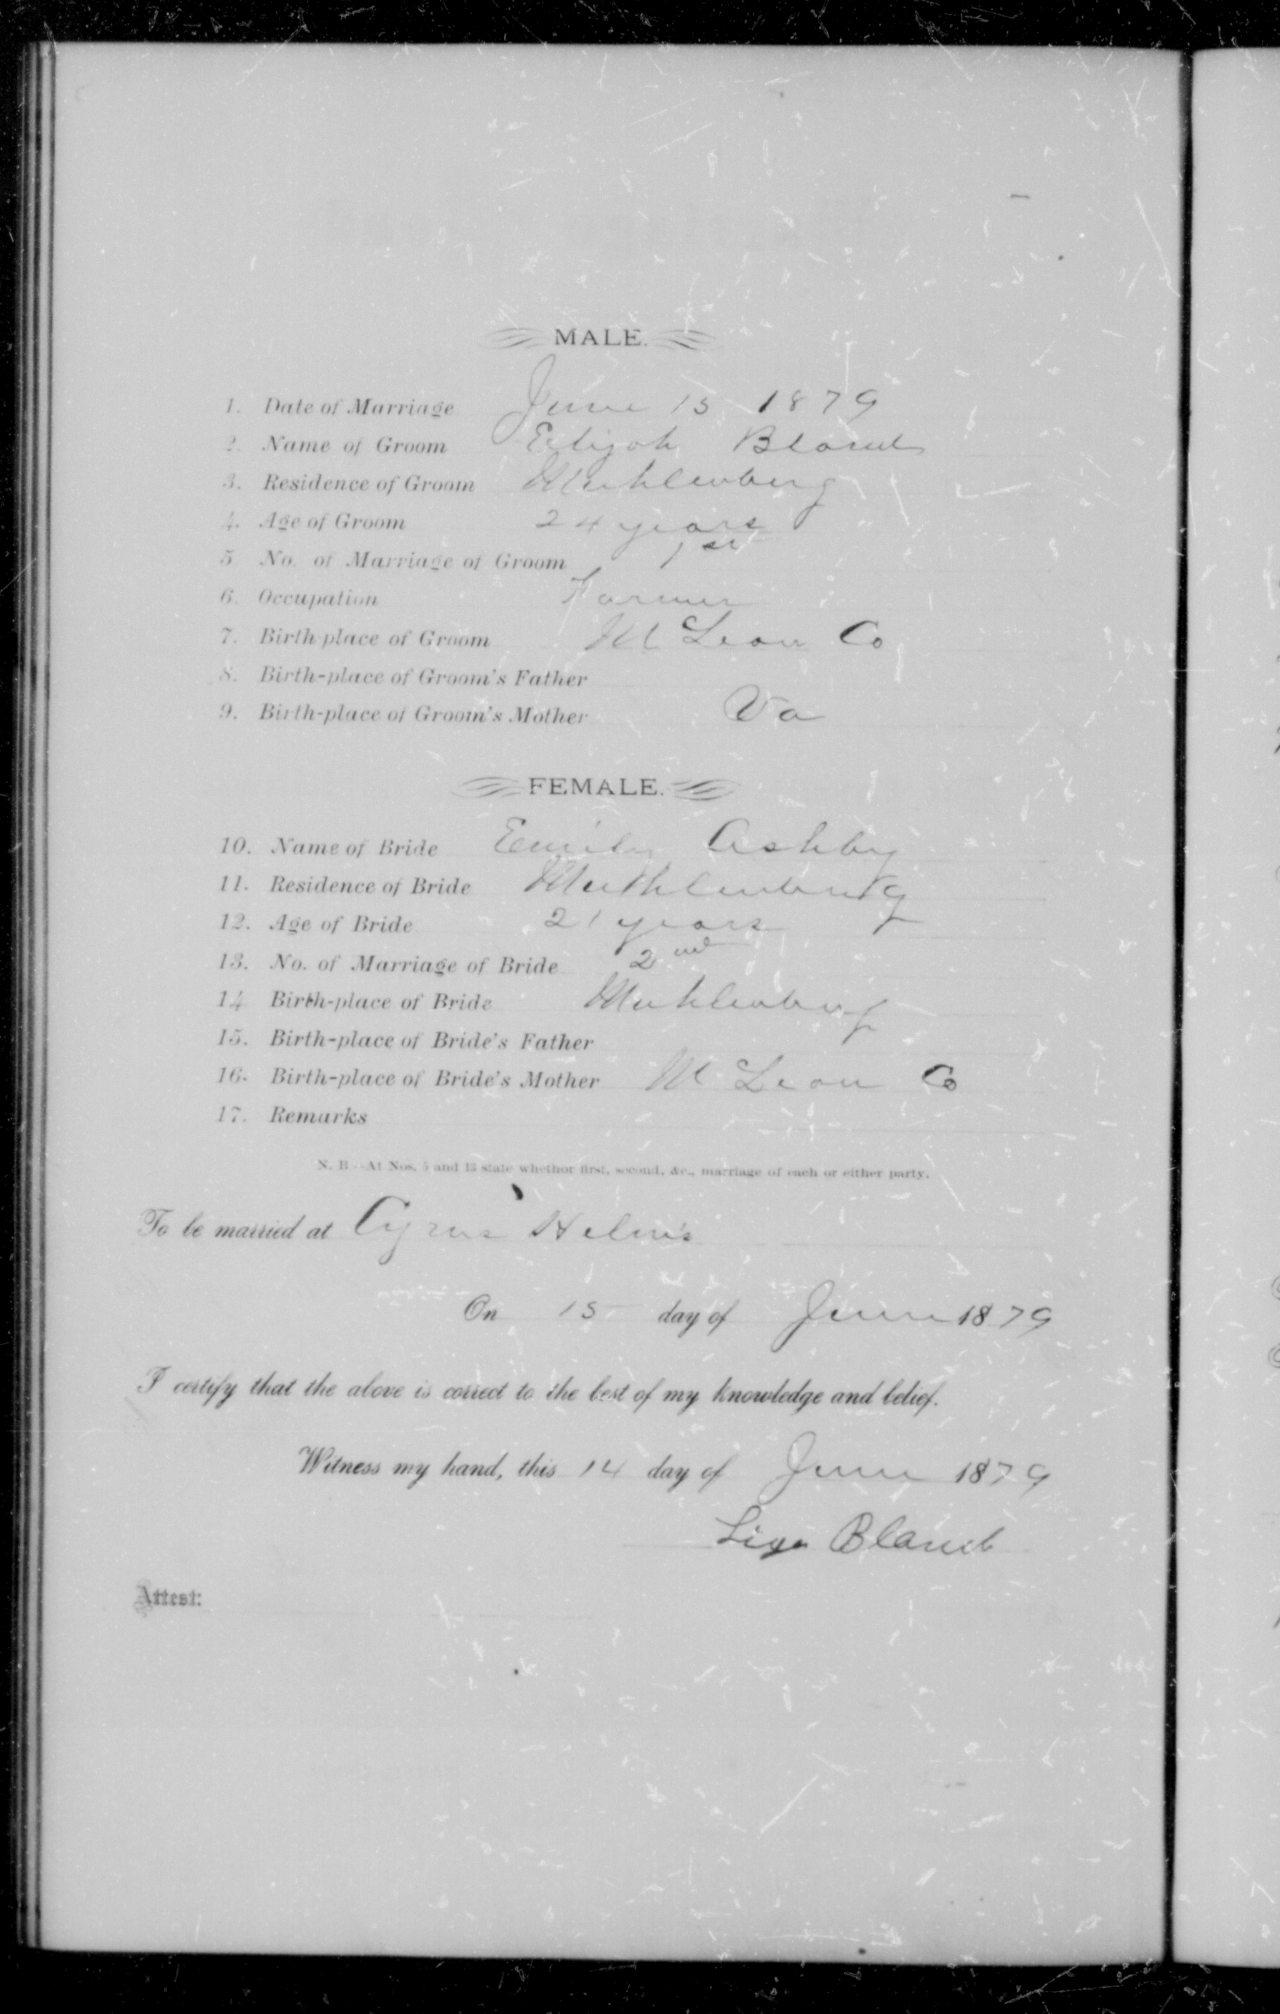 MALE.
1. Date of Marriage June 15 1879
2. Name of Groom Elijah Bland
3. Residence of Groom Muhlenberg
4. Age of Groom 24 years
5. No. of Marriage of Groom 1st
6. Occupation Farmer
7. Birth place of Groom McLean Co
8. Birth-place of Groom's Father
9. Birth-place of Groom's Mother Va
FEMALE.
10. Name of Bride Emily Ashby
11. Residence of Bride Muhlenburg
12. Age of Bride 21 years
13. No. of Marriage of Bride 2nd
14 Birth-place of Bride Muhlenberg
15. Birth-place of Bride's Father
16. Birth-place of Bride's Mother McLean Co
17. Remarks
N. B—At Nos. 5 and 13 state whethor first, second, &c., marriage of each or either party.
To be married at Cyrus Helm's
On 15 day of June 1879
I certify that the above is correct to the best of my knowledge and belief.
Witness my hand, this 14 day of June 1879
Lige Bland
Attest: